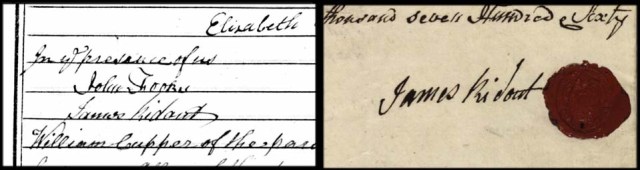 Elizabeth
In yᵉ presence of us
John Fooks
James Ridout
William Cupper of the
thousand seven Hundred & Sixty
James Ridout